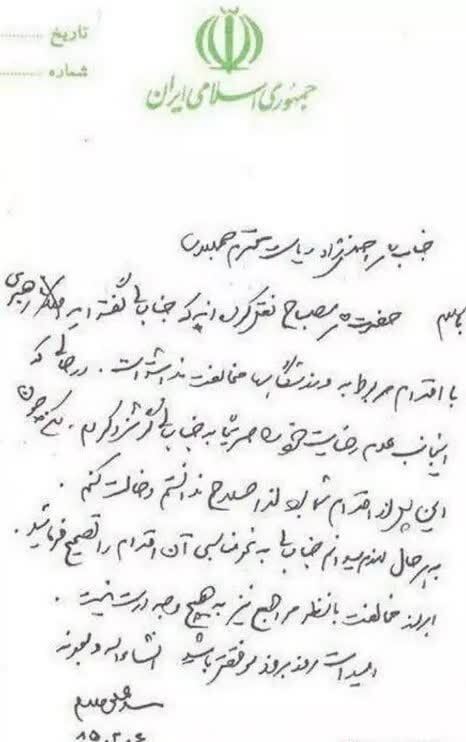 تاریخ
شماره
جمهوری اسلامی ایران
جناب آقای احمدی‌نژاد ریاست محترم جمهوری
با سلام حضرت آقای مصباح نقل کردند که جنابعالی گفته‌اید رهبری
با اقدام مربوط به ورزشگاه‌ها مخالفت نداشته است. در حالی که
اینجانب عدم رضایت خود را صریحا به جنابعالی گوشزد کردم.
این پس از اقدام شما بود لذا صلاح ندانستم دخالت کنم.
به هر حال لازم میدانم جنابعالی به نحو مناسبی آن اقدام را تصحیح فرمائید.
ابراز مخالفت با نظر مراجع نیز به هیچ وجه درست نیست.
امید است روز بروز موفقتر باشید انشاءاله و بعونه